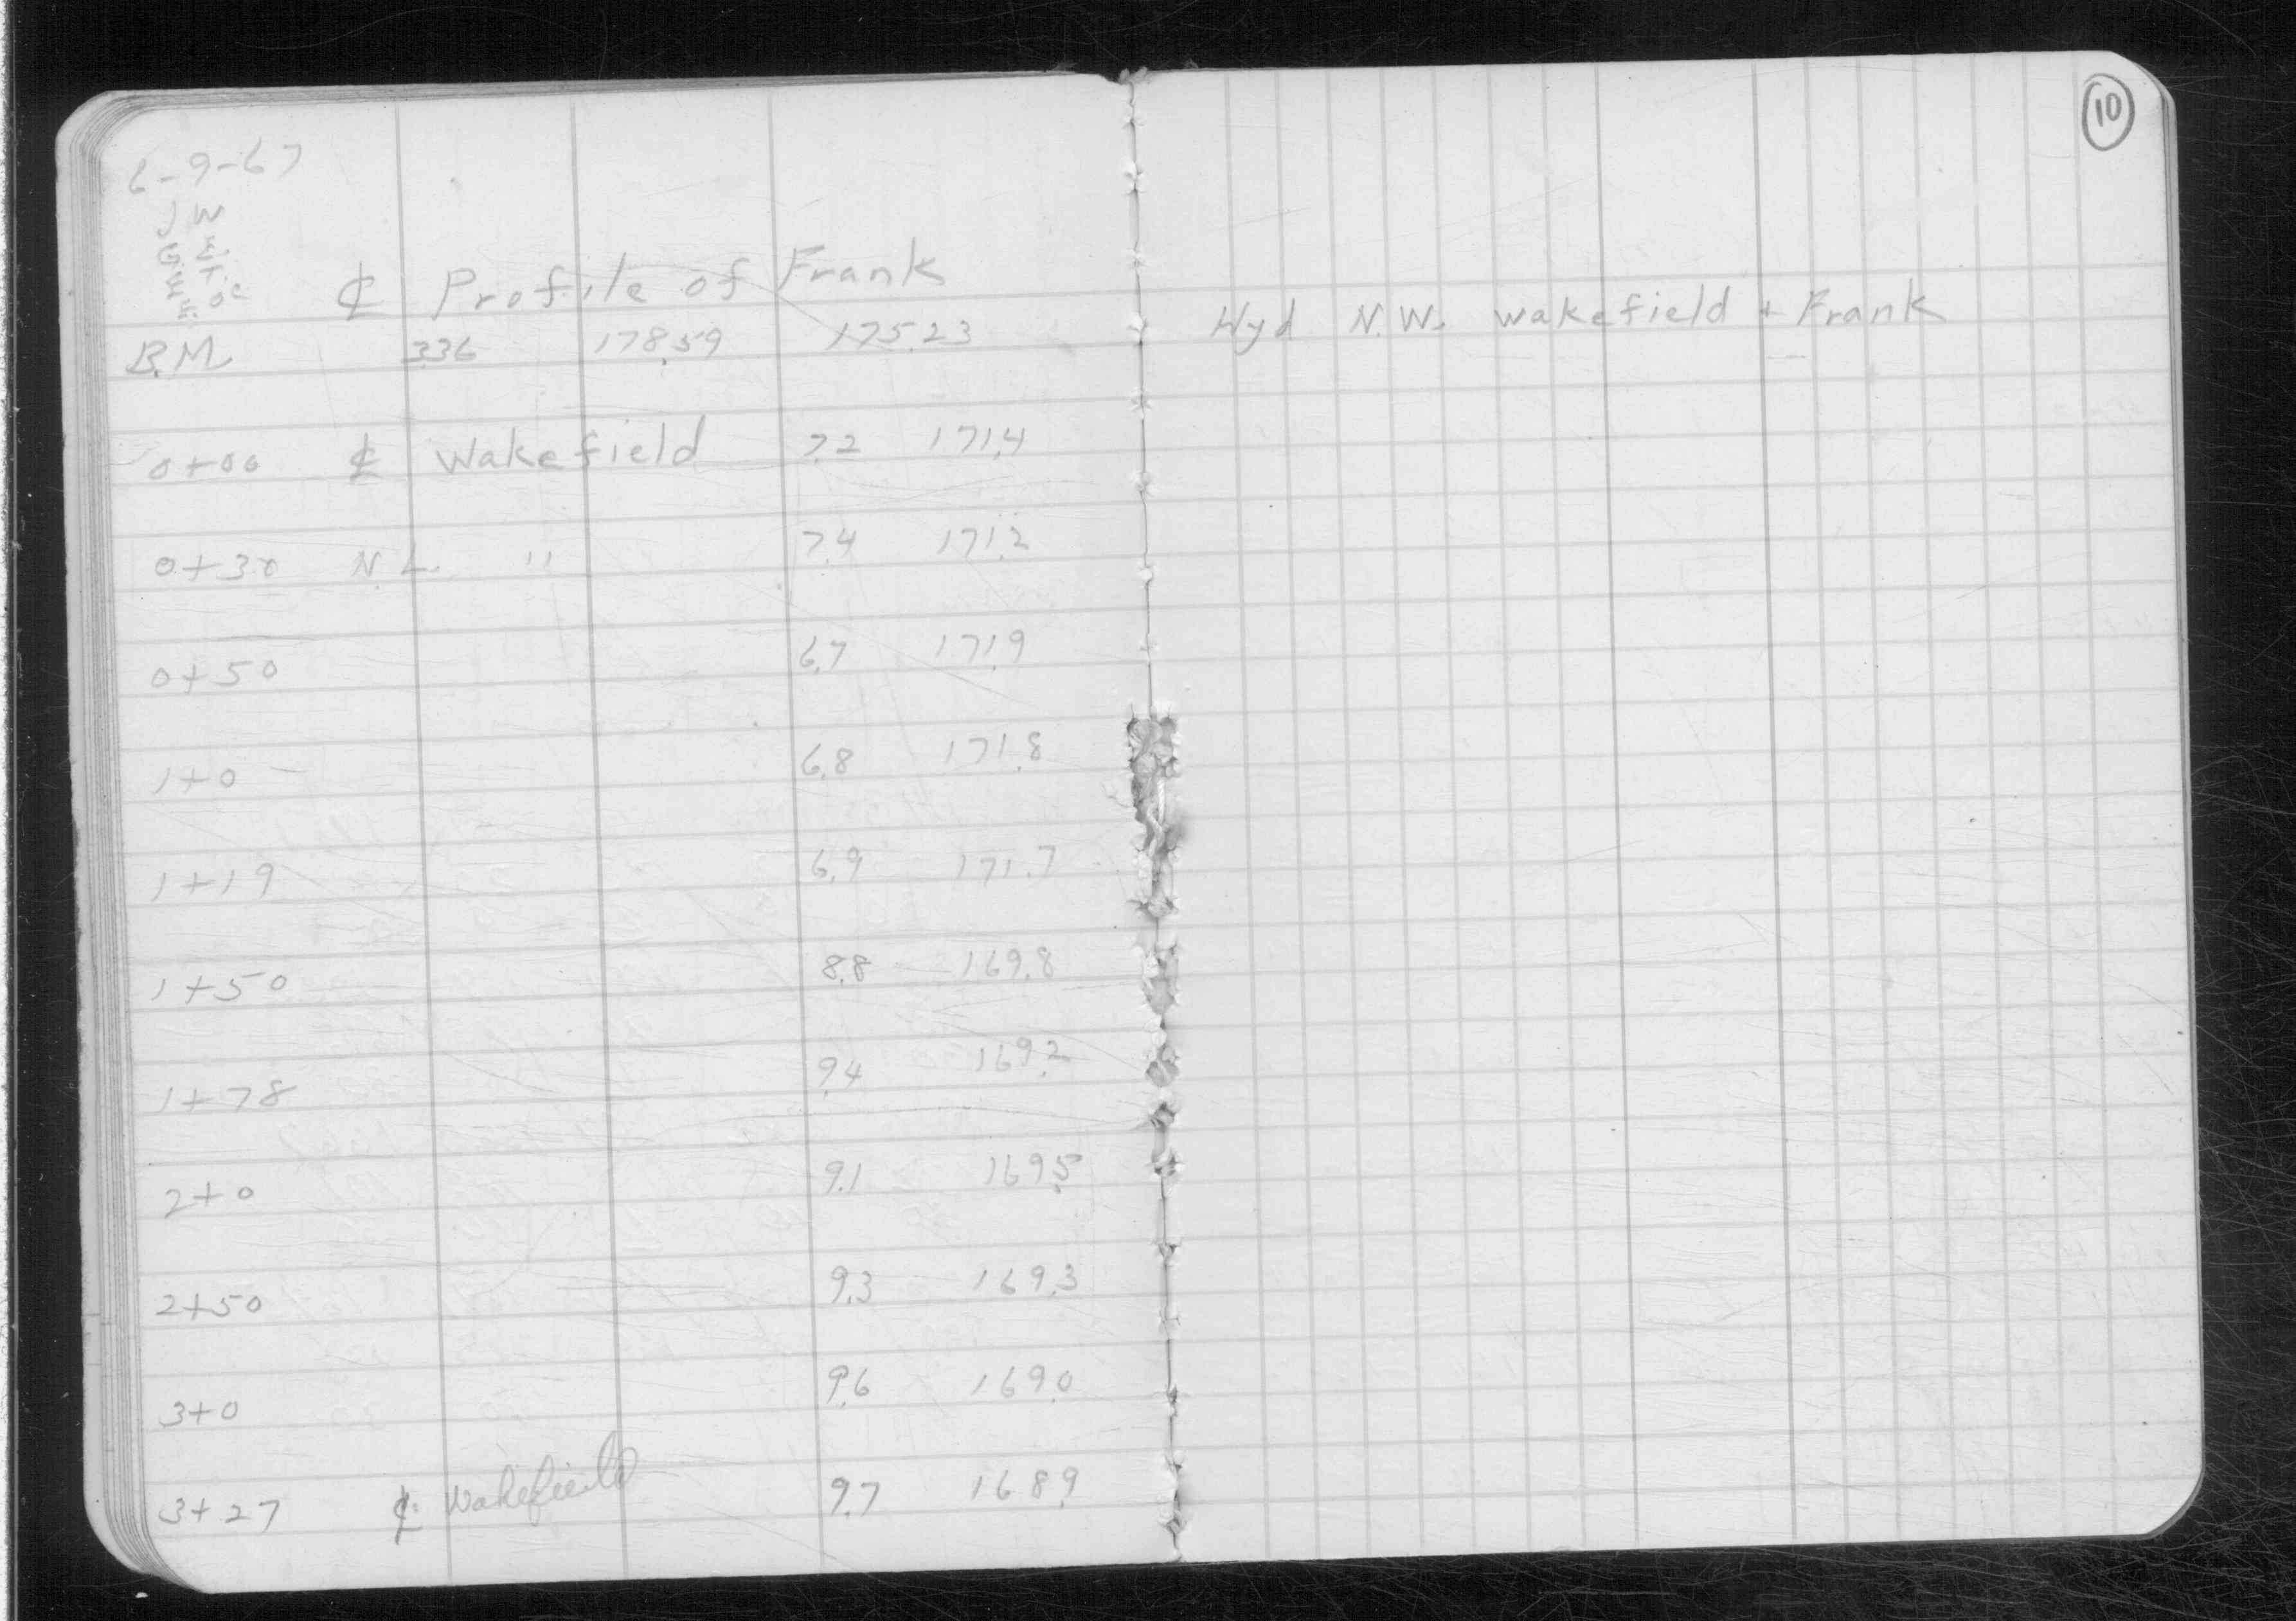 10
6-9-67
℄ Profile of Frank
B.M. 3.36 178.59 175.23 Hyd N.W. Wakefield + Frank
0+00 ℄ Wakefield 7.2 171.4
0+30 N.L. " 7.4 171.2
0+50 6.7 171.9
1+0 6.8 171.8
1+19 6.9 171.7
1+50 8.8 169.8
1+78 9.4 169.2
2+0 9.1 169.5
2+50 9.3 169.3
3+0 9.6 169.0
3+27 ℄ Wakefield 9.7 168.9